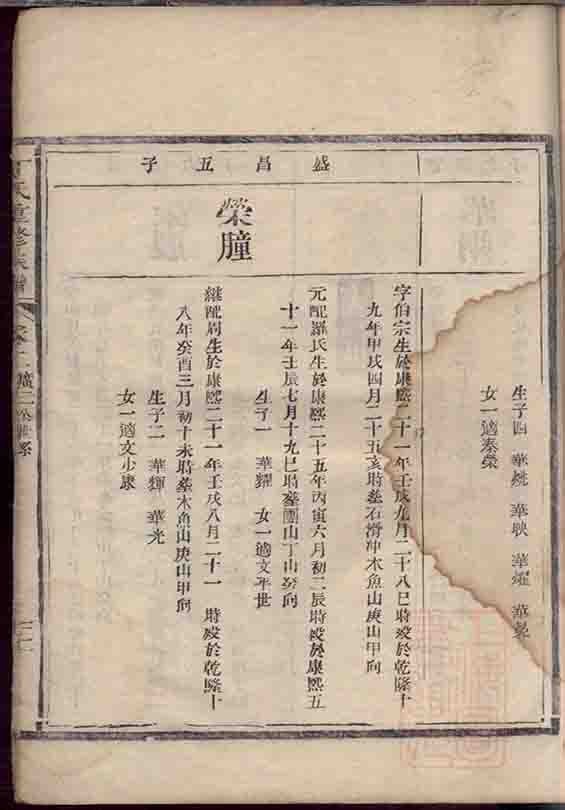 生子四 華 華映 華耀 華
女一適泰榮
盛昌五子
榮膧
字伯宗生於康熙二十一年壬戌九月二十八巳時歿於乾隆十
九年甲戌四月二十五亥時塟石滑冲木魚山庚山甲向
元配羅氏生於康熙二十五年丙寅六月初二辰時歿於康熙五
十一年壬辰七月十九巳時塟團山丁山癸向
生子一 華耀 女一適文平世
繼配周生於康熙二十一年壬戌八月二十一 時歿於乾隆十
八年癸酉三月初十未時塟木魚山庚山甲向
生子二 華輝 華光
女一適文少康
氏重修族譜